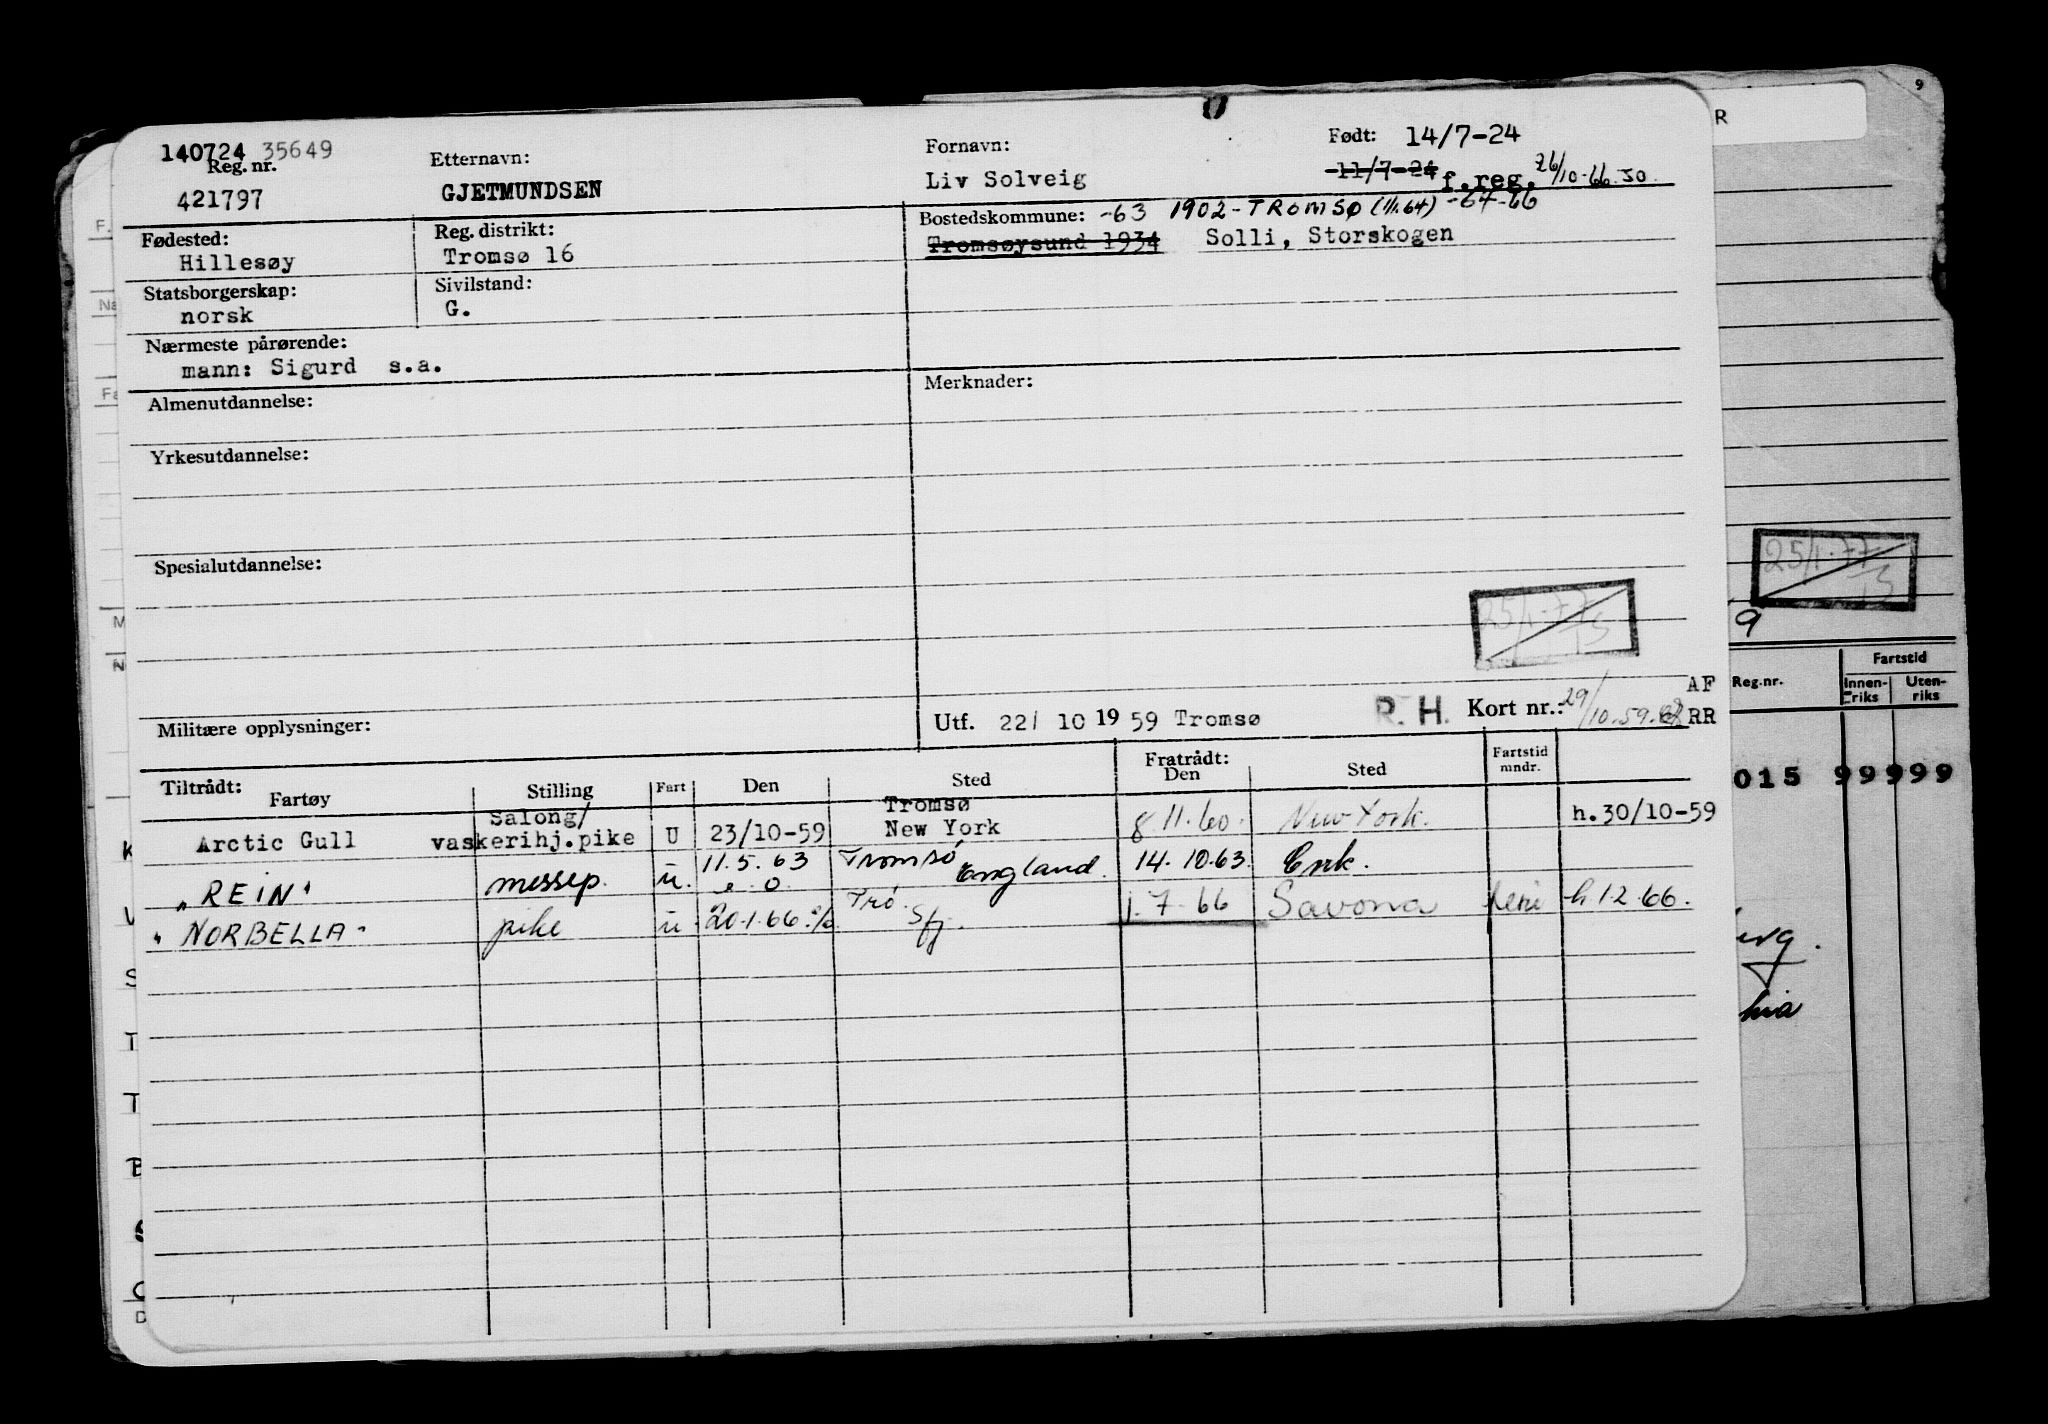 140724 35649
Reg. nr.
421797
Etternavn:
GJETMUNDSEN
Fornavn:
Liv Solveig
Født: 14/7-24
11/7-24 f.reg. 26/10-66 JO.
Fødested:
Hillesøy
Reg. distrikt:
Tromsø 16
Bostedskommune: -63 1902-TROMSØ (1/1.64) -64-66
Tromsøysund 1934 Solli, Storskogen
Statsborgerskap:
norsk
Sivilstand:
G.
Nærmeste pårørende:
mann: Sigurd s.a.
Almenutdannelse:
Merknader:
Yrkesutdannelse:
Spesialutdannelse:
25/1-77
Militære opplysninger:
Utf. 22/ 10 19 59 Tromsø
R. H. Kort nr.: 29/10.59.
Tiltrådt: Fartøy Stilling Fart Den Sted Fratrådt: Den Sted Fartstid mndr.
Arctic Gull Salong/vaskerihj.pike U 23/10-59 Tromsø New York 8.11.60. New York. h.30/10-59
"REIN" messep. u. 11.5.63 Tromsø England. 14.10.63. Enk.
"NORBELLA" pike u 20.1.66 Trø. Sfj. 1.7-66 Savona ferie h 1.2.66.
9
R
25/1-77
9
AF
RR
Reg.nr. Fartstid
Innen-riks Uten-riks
015 99999